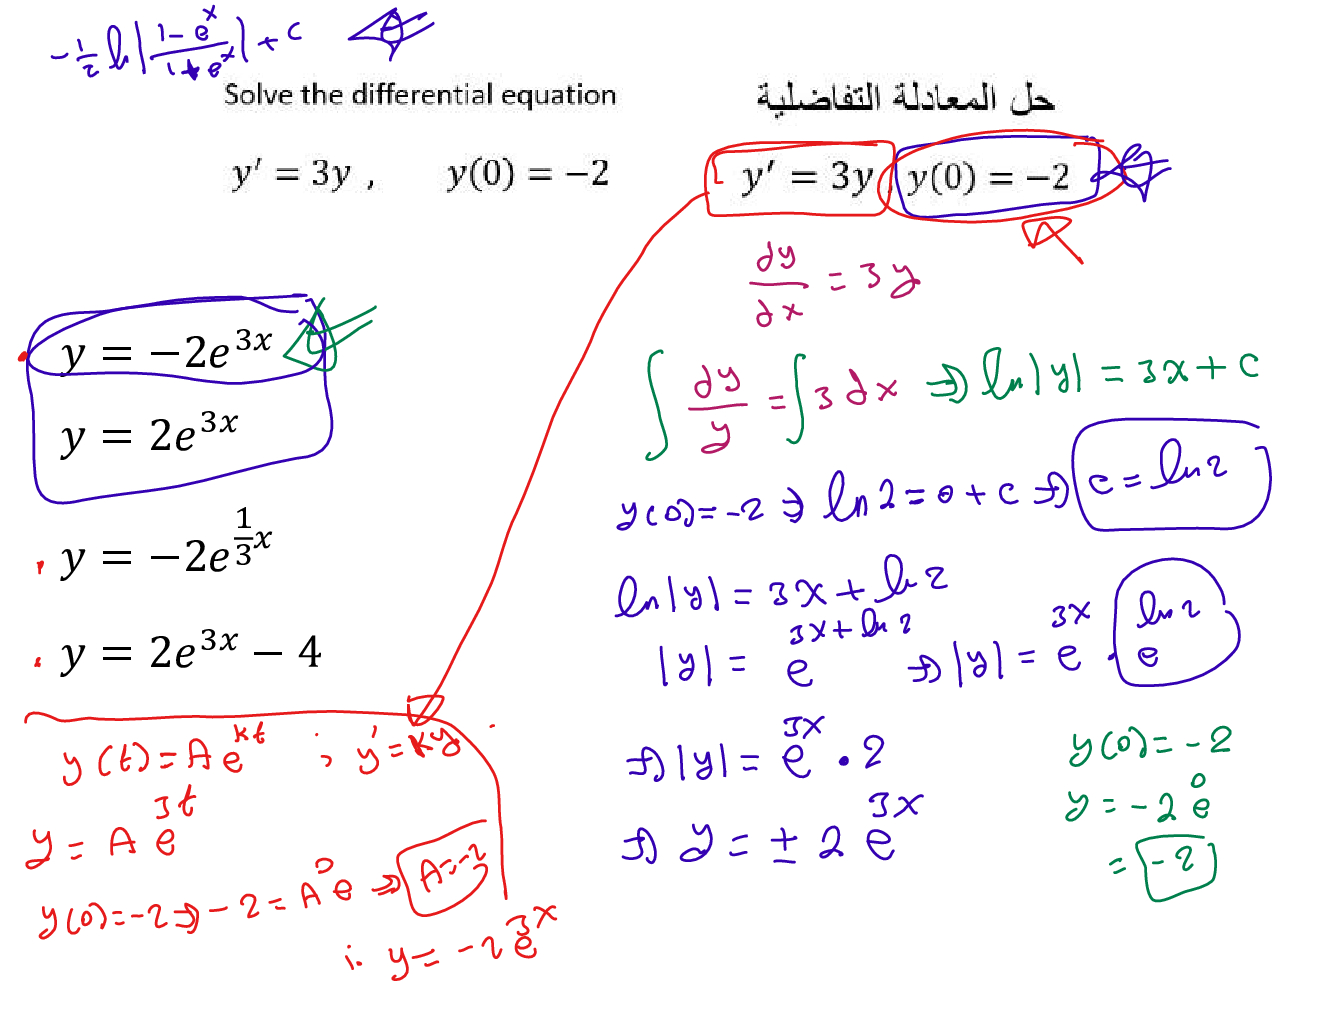 -1/2 ln|(1-e^x)/(1+e^x)| + c
Solve the differential equation
حل المعادلة التفاضلية
y′ = 3y ,    y(0) = −2
y′ = 3y    y(0) = −2
dy/dx = 3y
∫ dy/y = ∫ 3dx ⇒ ln|y| = 3x + c
y(0) = -2 ⇒ ln 2 = 0 + c ⇒ c = ln 2
ln|y| = 3x + ln 2
|y| = e^(3x + ln 2) ⇒ |y| = e^(3x) · e^(ln 2)
⇒ |y| = e^(3x) · 2
⇒ y = ± 2 e^(3x)
y(0) = -2
y = -2 e^0
= -2
y = −2e^(3x)
y = 2e^(3x)
y = −2e^(1/3 x)
y = 2e^(3x) − 4
y(t) = A e^(kt) ; y′ = ky
y = A e^(3t)
y(0) = -2 ⇒ -2 = A e^0 ⇒ A = -2
∴ y = -2 e^(3x)